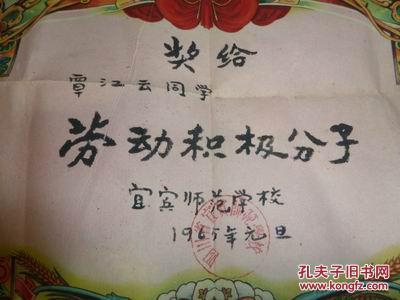 奖给
覃江云同学
劳动积极分子
宜宾师范学校
1965年元旦
孔夫子旧书网
www.kongfz.com